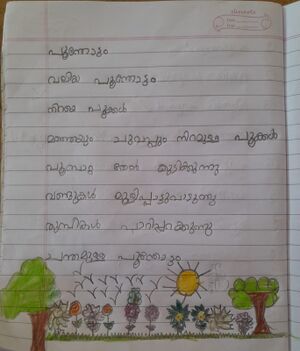 classmate
Date
Page
പൂന്തോട്ടം
വലിയ പൂന്തോട്ടം
നിറയെ പൂക്കൾ
മഞ്ഞയും ചുവപ്പും നിറമുള്ള പൂക്കൾ
പൂമ്പാറ്റ തേൻ കുടിക്കുന്നു
വണ്ടുകൾ മൂളിപ്പാട്ടുപാടുന്നു
തുമ്പികൾ പാറിപ്പറക്കുന്നു
ചന്തമുള്ള പൂന്തോട്ടം